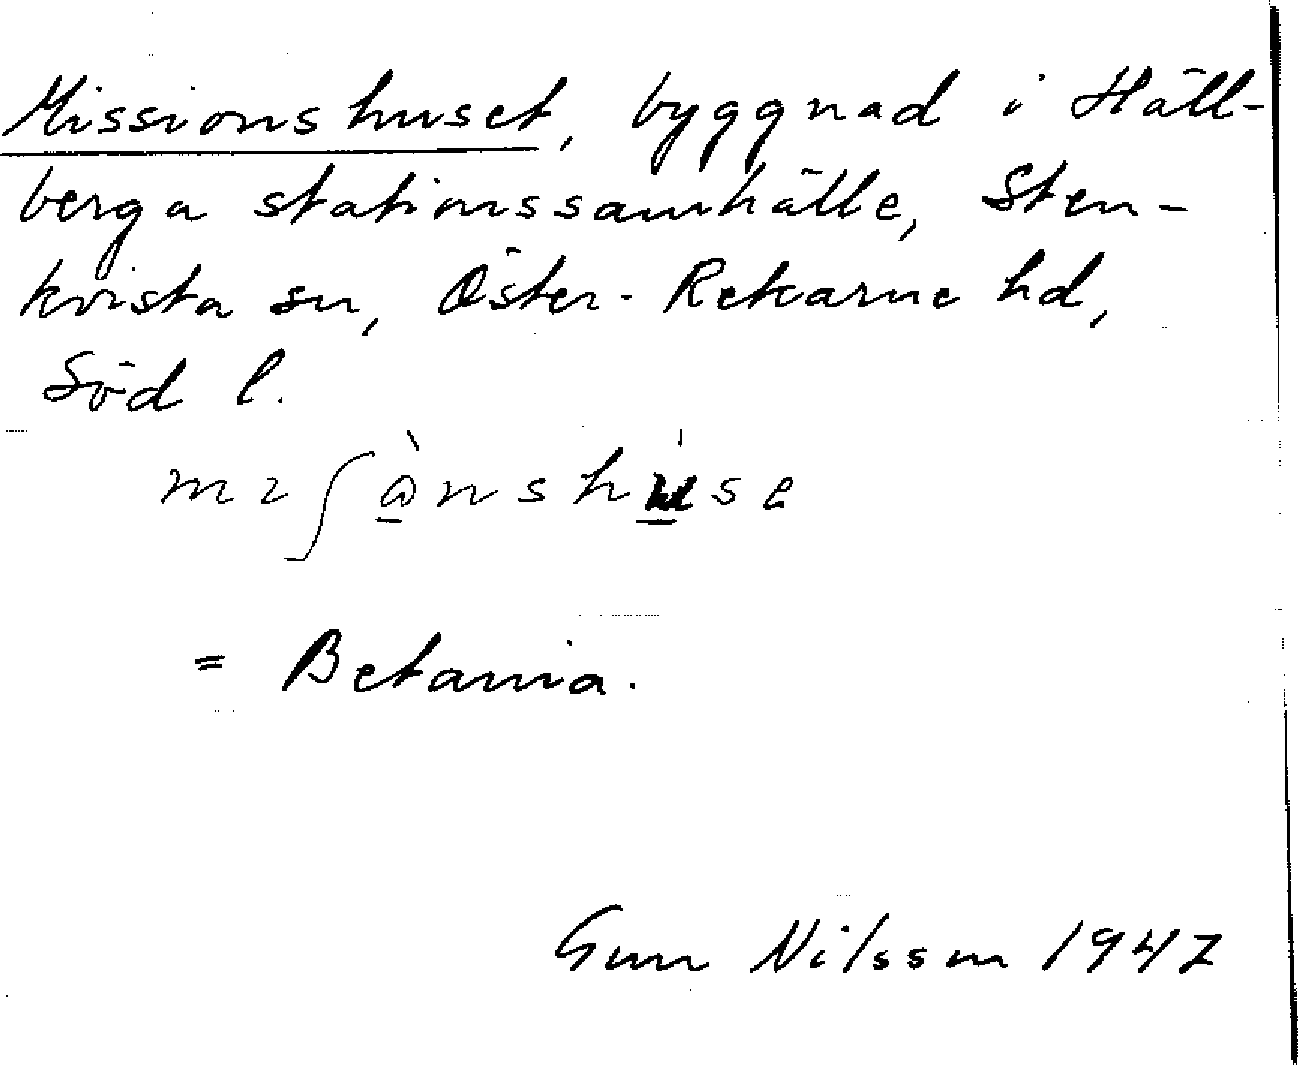 Missionshuset, byggnad i Häll-
berga stationssamhälle, Sten-
kvista sn, Öster-Rekarne hd,
Söd l.
= Betania.
Gun Nilsson 1947